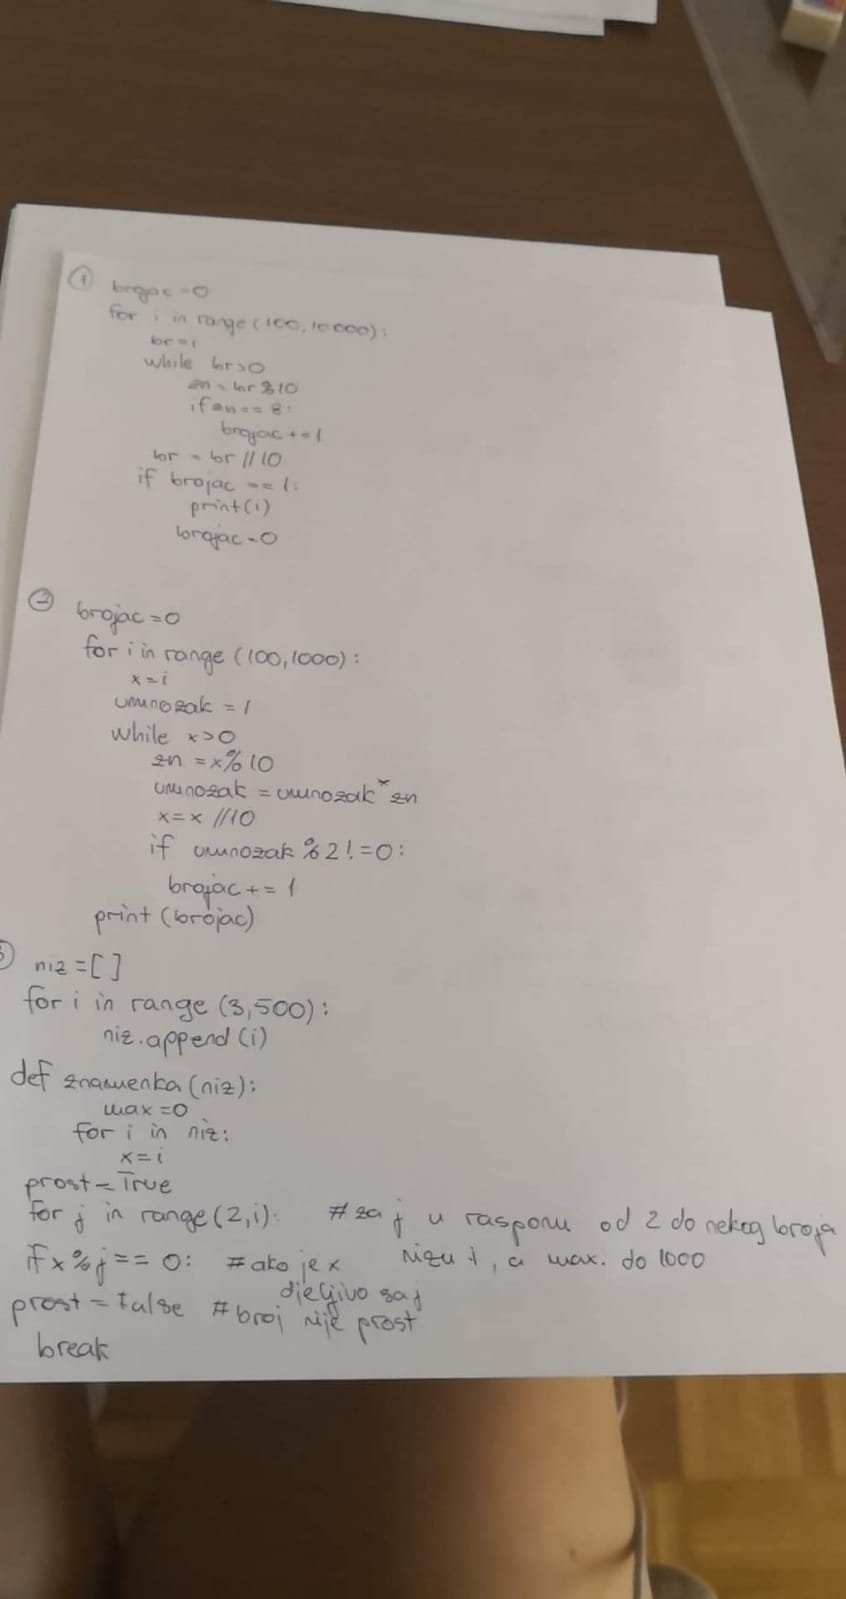 ① brojac=0
for i in range(100,10000):
br=i
while br>0
zn=br%10
if zn==8:
brojac+=1
br = br//10
if brojac == 1:
print(i)
brojac=0
② brojac=0
for i in range (100,1000):
x=i
umnozak = 1
while x>0
zn = x%10
umnozak = umnozak*zn
x=x //10
if umnozak %2!=0:
brojac+= 1
print (brojac)
niz=[]
for i in range (3,500):
niz.append(i)
def znamenka(niz):
max=0
for i in niz:
x=i
prost=True
for j in range(2,i): #za j u rasponu od 2 do nekog broja
if x%j==0: #ako je x nizu i, a max. do 1000
djeljivo sa j
prost=false #broj nije prost
break